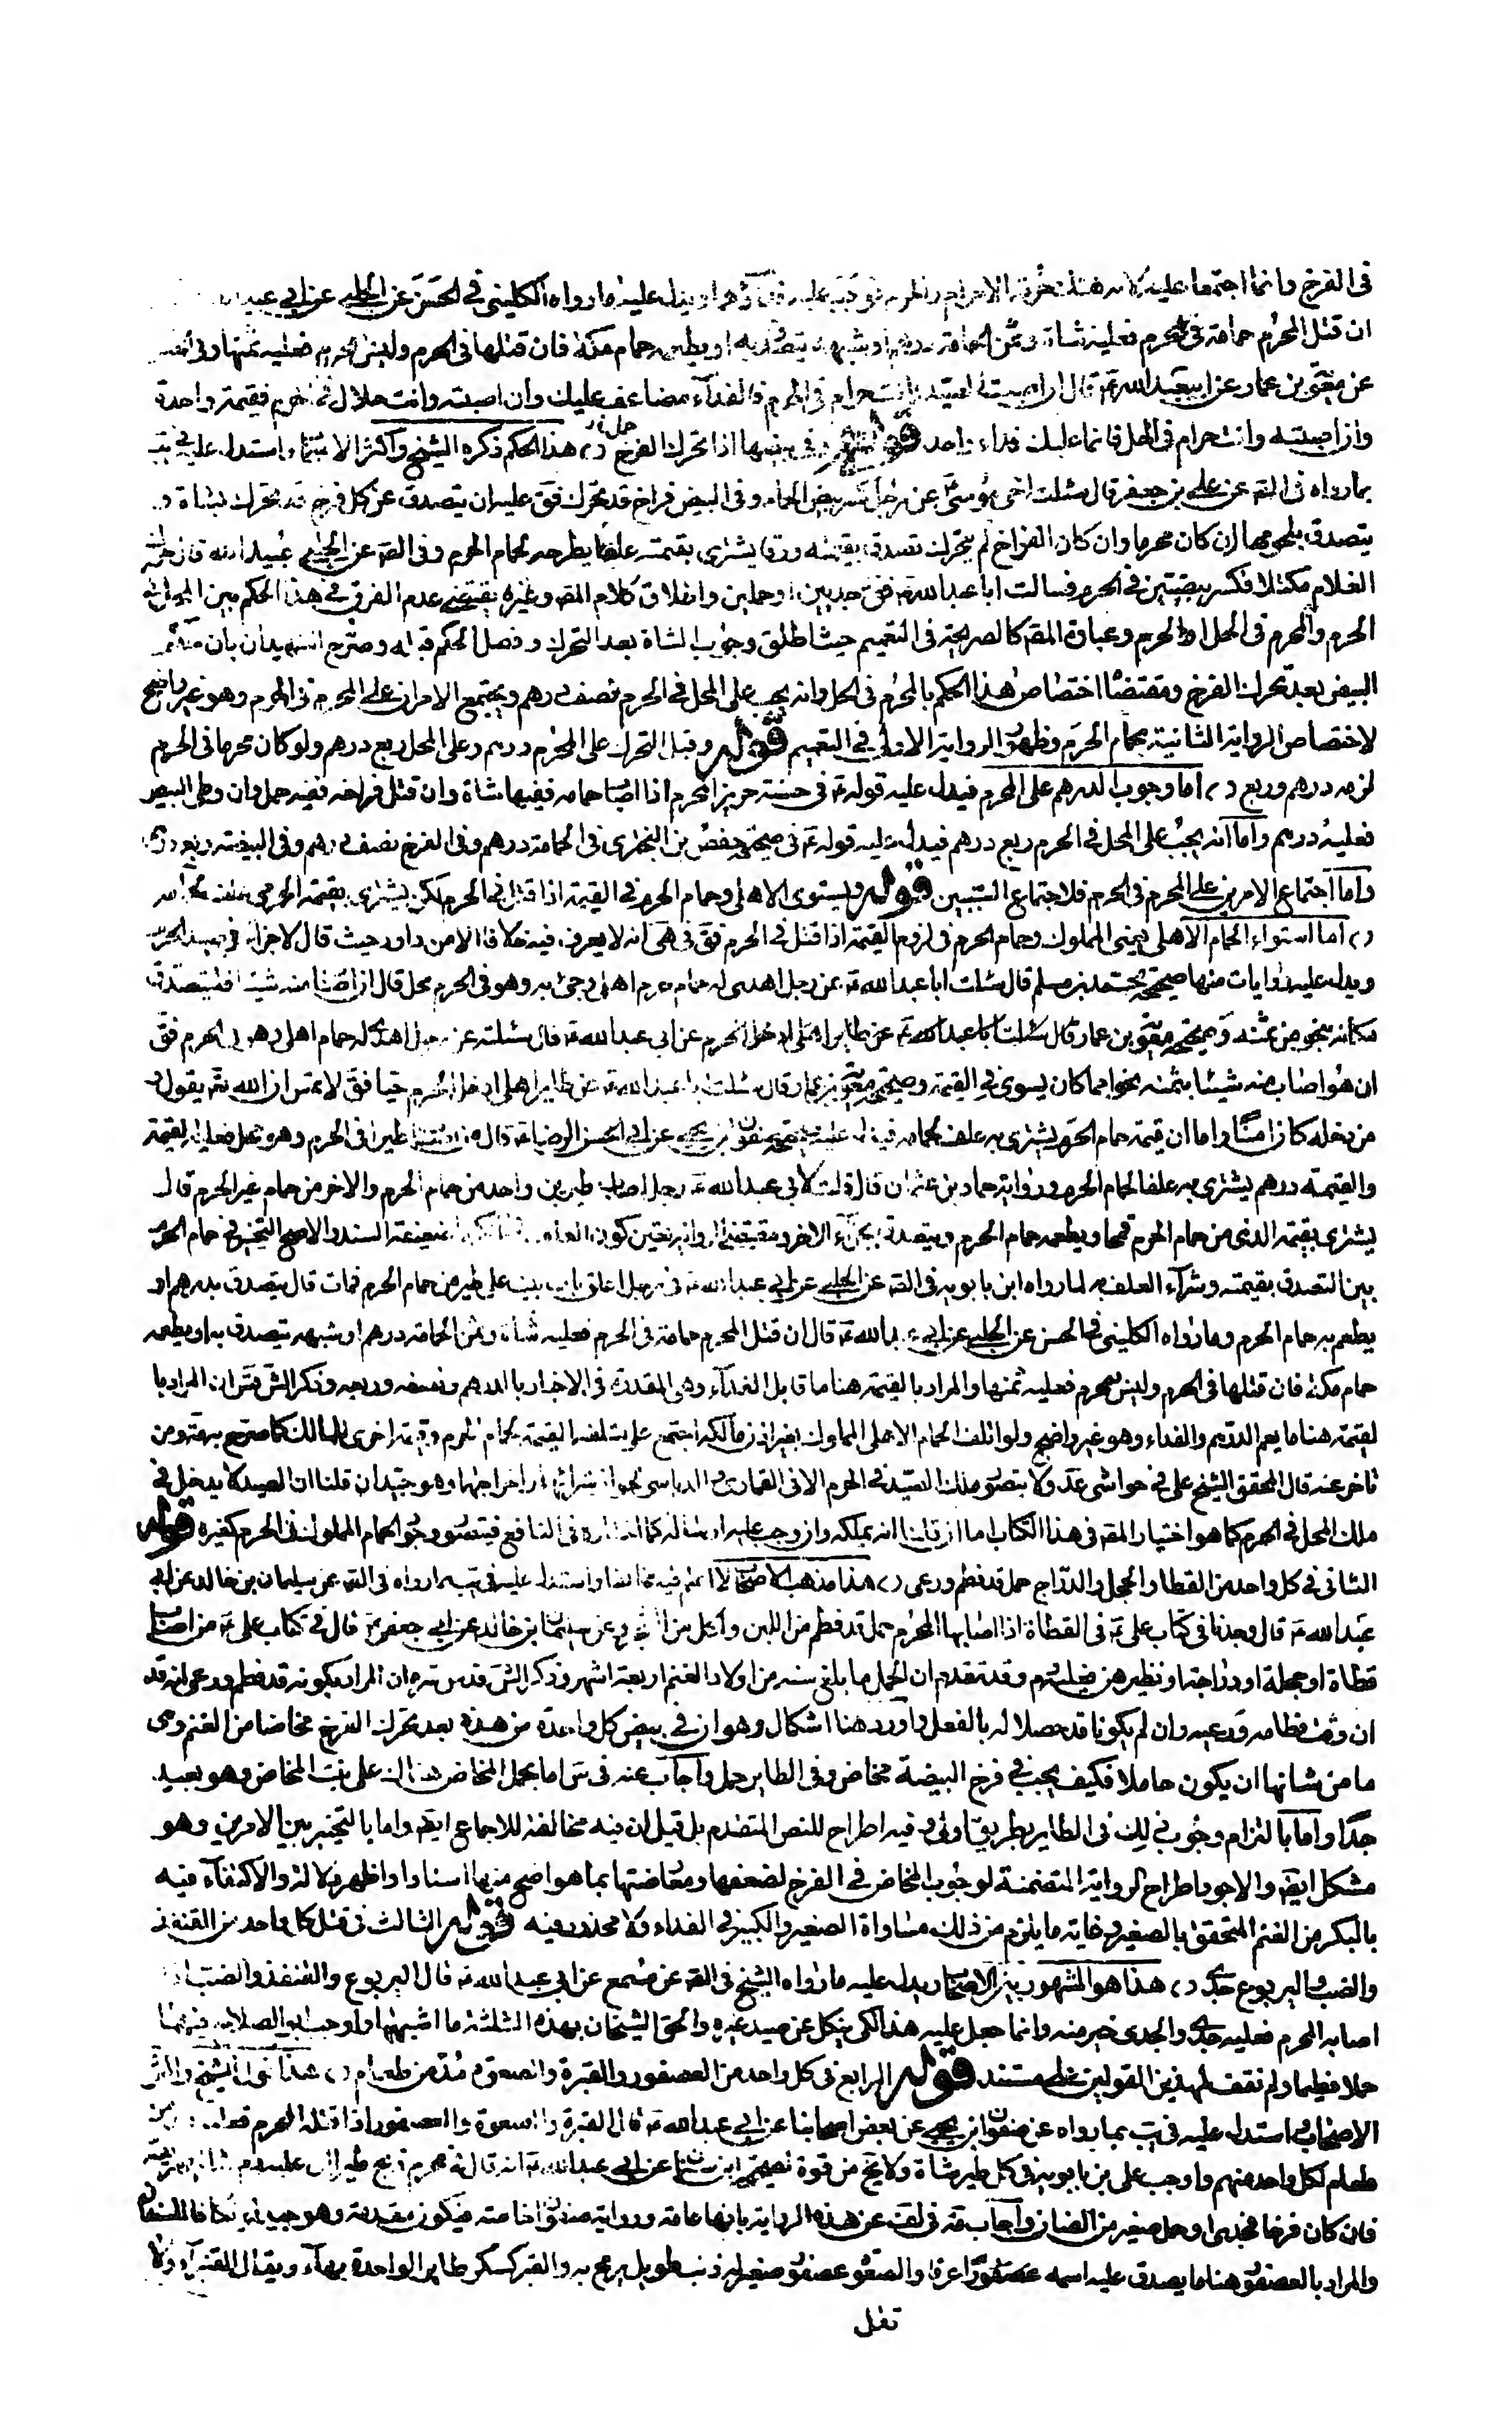 فى الفرخ وانما اجتمعا عليه لانه هتك حرمة الاحرام والحرم فوجب عليه ويدل عليه ما رواه الكلينى فى الحسن عن الحلبى عن ابى عبد
ان قتل المحرم حمامة فى الحرم فعليه شاة وثمن الحمامة درهم او شبهه يتصدق به او يطعمه حمام مكة فان قتلها فى الحرم وليس بمحرم فعليه ثمنها وفى
عن معوية بن عمار عن ابيعبد الله ع قال ان اصبت الصيد وانت حرام فى الحرم فالفداء مضاعف عليك وان اصبته وانت حلال فى الحرم فقيمة واحدة
وان اصبته وانت حرام فى الحل فانما عليك فداء واحد قوله وفى بيضها اذا تحرك الفرخ حمل د، هذا الحكم ذكره الشيخ واكثر الاصحاب واستدل عليه فى يب
بما رواه فى الصح عن على بن جعفر قال سئلت اخى موسى ع عن رجل كسر بيض الحمام وفى البيض فراخ قد تحرك فق عليه ان يتصدق عن كل فرخ قد تحرك بشاة و
يتصدق بلحومها ان كان محرما وان كان الفراخ لم يتحرك تصدق بقيمته ورقا يشترى بقيمته علفا يطرحه لحمام الحرم وفى الصح عن الحلبى عبيد الله قال حرك
الغلام مكتلا فكسر بيضتين فى الحرم فسالت ابا عبد الله ع فق جديين او حملين واطلاق كلام المص وغيره يقتضى عدم الفرق فى هذا الحكم بين المحل فى
الحرم والمحرم فى الحل او الحرم وعبارة المص كالصريحة فى التعميم حيث اطلق وجوب الشاة بعد التحرك وفصل الحكم قبله وصرح الشهيدان بان حكم
البيض بعد تحرك الفرخ ومقتضاه اختصاص هذا الحكم بالمحرم فى الحل وانه يجب على المحل فى الحرم نصف درهم ويجتمع الامران على المحرم فى الحرم وهو غير واضح
لاختصاص الرواية الثانية بحمام الحرم وظهور الرواية الاولى فى التعميم قوله وقبل التحرك على المحرم درهم وعلى المحل ربع درهم ولو كان محرما فى الحرم
لزمه درهم وربع د، اما وجوب الدرهم على المحرم فيدل عليه قوله ع فى حسنة حريز المحرم اذا اصاب حمامة ففيها شاة وان قتل فراخه ففيه حمل وان وطى البيض
فعليه درهم واما انه يجب على المحل فى الحرم ربع درهم فيدل عليه قوله ع فى صحيحة حفص بن البخترى فى الحمامة درهم وفى الفرخ نصف درهم وفى البيضة ربع درهم
واما اجتماع الامرين على المحرم فى الحرم فلاجتماع السببين قوله ويستوى الاهلى وحمام الحرم فى القيمة اذا قتل فى الحرم لكن يشترى بقيمة الحرمى علف لحمامه
د، اما استواء الحمام الاهلى يعنى المملوك وحمام الحرم فى لزوم القيمة اذا قتل فى الحرم فق فى هى انه لا يعرف فيه خلافا الا من داود حيث قال لا جزاء فى صيد الحرم
ويدل عليه روايات منها صحيحة محمد بن مسلم قال سئلت ابا عبد الله ع عن رجل اهدى له حمام اهلى وجئ به وهو فى الحرم محل قال ان اصاب منه شيئا فليتصدق
مكانه بنحو من ثمنه وصحيحة معوية بن عمار قال سئلت ابا عبد الله ع عن طاير اهلى ادخل الحرم عن ابى عبد الله ع قال سئلته عن رجل اهدى له حمام اهلى وهو فى الحرم فق
ان هو اصاب منه شيئا بثمنه نحوا مما كان يسوى فى القيمة وصحيحة معوية بن عمار قال سئلت ابا عبد الله ع عن طاير اهلى ادخل الحرم حيا فق لا يمس ان الله تع يقول و
من دخله كان امنا واما ان قيمة حمام الحرم يشترى به علف لحمامه فيدل عليه صحيحة صفوان بن يحيى عن ابى الحسن الرضا ع قال من اصاب طيرا فى الحرم وهو محل فعليه القيمة
والقيمة درهم يشترى به علفا لحمام الحرم ورواية حماد بن عثمان قال قلت لابى عبد الله ع رجل اصاب طيرين واحد من حمام الحرم والاخر من حمام غير الحرم قال
يشترى بقيمة الذى من حمام الحرم قمحا ويطعمه حمام الحرم ويتصدق بجزاء الاخر ومقتضى الرواية تعين كون ضعيفة السند والاصح التخيير فى حمام الحرم
بين التصدق بقيمته وشراء العلف به لما رواه ابن بابويه فى الصح عن الحلبى عن ابى عبد الله ع فى رجل اغلق باب بيت على طير من حمام الحرم فمات قال يتصدق بدرهم او
يطعم به حمام الحرم وما رواه الكلينى فى الحسن عن الحلبى عن ابى عبد الله ع قال ان قتل المحرم حمامة فى الحرم فعليه شاة وثمن الحمامة درهم او شبهه يتصدق به او يطعمه
حمام مكة فان قتلها فى الحرم وليس بمحرم فعليه ثمنها والمراد بالقيمة هنا ما قابل الفداء وهى المقدرة فى الاخبار بالدرهم ونصفه وربعه وذكر الش ان المراد با
لقيمة هنا ما يعم الدرهم والفداء وهو غير واضح ولو اتلف الحمام الاهلى المملوك بغير اذن مالكه اجتمع على متلفه القيمة لحمام الحرم وقيمة اخرى للمالك كما صرح به ومن
تاخر عنه قال المحقق الشيخ على فى حواشى عد ولا يتصور ملك الصيد فى الحرم الا فى القمارى والدباسى لجواز شرائها واخراجها وهو جيد ان قلنا ان الصيد لا يدخل فى
ملك المحل فى الحرم كما هو اختيار المص فى هذا الكتاب اما ان قلنا انه يملكه وان وجب عليه ارساله كما اختاره فى النافع فيتصور وجوب الحمام المملوك فى الحرم كغيره قوله
الثانى فى كل واحد من القطا والحجل والدراج حمل قد فطم ورعى د، هذا مذهب الاصحاب لا اعلم فيه مخالفا واستدل عليه فى يب بما رواه فى الصح عن سليمان بن خالد عن ابى
عبد الله ع قال وجدنا فى كتاب على ع فى القطاة اذا اصابها المحرم حمل قد فطم من اللبن واكل من الشجر وعن سليمان بن خالد عن ابى جعفر ع قال فى كتاب على ع من اصاب
قطاة او حجلة او دراجة او نظيرهن فعليه دم وقد تقدم ان الحمل ما بلغ سنه من اولاد الغنم اربعة اشهر وذكر الش قدس سره ان المراد بكونه قد فطم ورعى انه قد
ان وقت فطامه ورعيه وان لم يكونا قد حصلا له بالفعل واورد هنا اشكال وهو ان فى بيض كل واحدة من هذه بعد تحرك الفرخ مخاضا من الغنم وهى
ما من شانها ان يكون حاملا فكيف يجب فى فرخ البيضة مخاض وفى الطاير حمل واجاب عنه فى س اما بحمل المخاض هناك على بنت المخاض وهو بعيد
جدا واما بالتزام وجوب ذلك فى الطاير بطريق اولى وفيه اطراح للنص المتقدم بل قيل ان فيه مخالفة للاجماع ايض واما بالتخيير بين الامرين وهو
مشكل ايض والاجود اطراح الرواية المتضمنة لوجوب المخاض فى الفرخ لضعفها ومعارضتها بما هو اصح منها اسنادا واظهر دلالة والاكتفاء فيه
بالبكر من الغنم المتحقق بالصغير وغاية ما يلزم من ذلك مساواة الصغير والكبير فى الفداء ولا محذور فيه قوله الثالث فى قتل كل واحد من القنفذ
والضب واليربوع جدى د، هذا هو المشهور بين الاصحاب ويدل عليه ما رواه الشيخ فى الصح عن مسمع عن ابى عبد الله ع قال اليربوع والقنفذ والضب اذا
اصابه المحرم فعليه جدى والجدى خير منه وانما جعل عليه هذا لكى ينكل عن صيد غيره والحق الشيخان بهذه الثلثة ما اشبهها واوجب ابو الصلاح فيها
حملا فطيما ولم نقف لهذين القولين على مستند قوله الرابع فى كل واحد من العصفور والقبرة والصعوة مد من طعام د، هذا قول الشيخ واكثر
الاصحاب واستدل عليه فى يب بما رواه عن صفوان بن يحيى عن بعض اصحابنا عن ابى عبد الله ع قال القبرة والصعوة والعصفور اذا قتله المحرم فعليه مد من
طعام لكل واحد منهم واوجب على بن بابويه فى كل طير شاة ولا يخ من قوة لصحيحة ابن سنان عن ابى عبد الله ع انه قال فى محرم ذبح طيرا ان عليه دم شاة يهريقه
فان كان فرخا فجدى او حمل صغير من الضان واجاب عنه فى لف عن هذه الرواية بانها عامة ورواية صفوان خاصة فيكون مقدمة وهو جيد لو تكافا السند
والمراد بالعصفور هنا ما يصدق عليه اسمه عصفورا عرفا والصعو عصفور صغير له ذنب طويل يرمح به والقبر كسكر طاير الواحدة بهاء ويقال القنبراء ولا
تقل